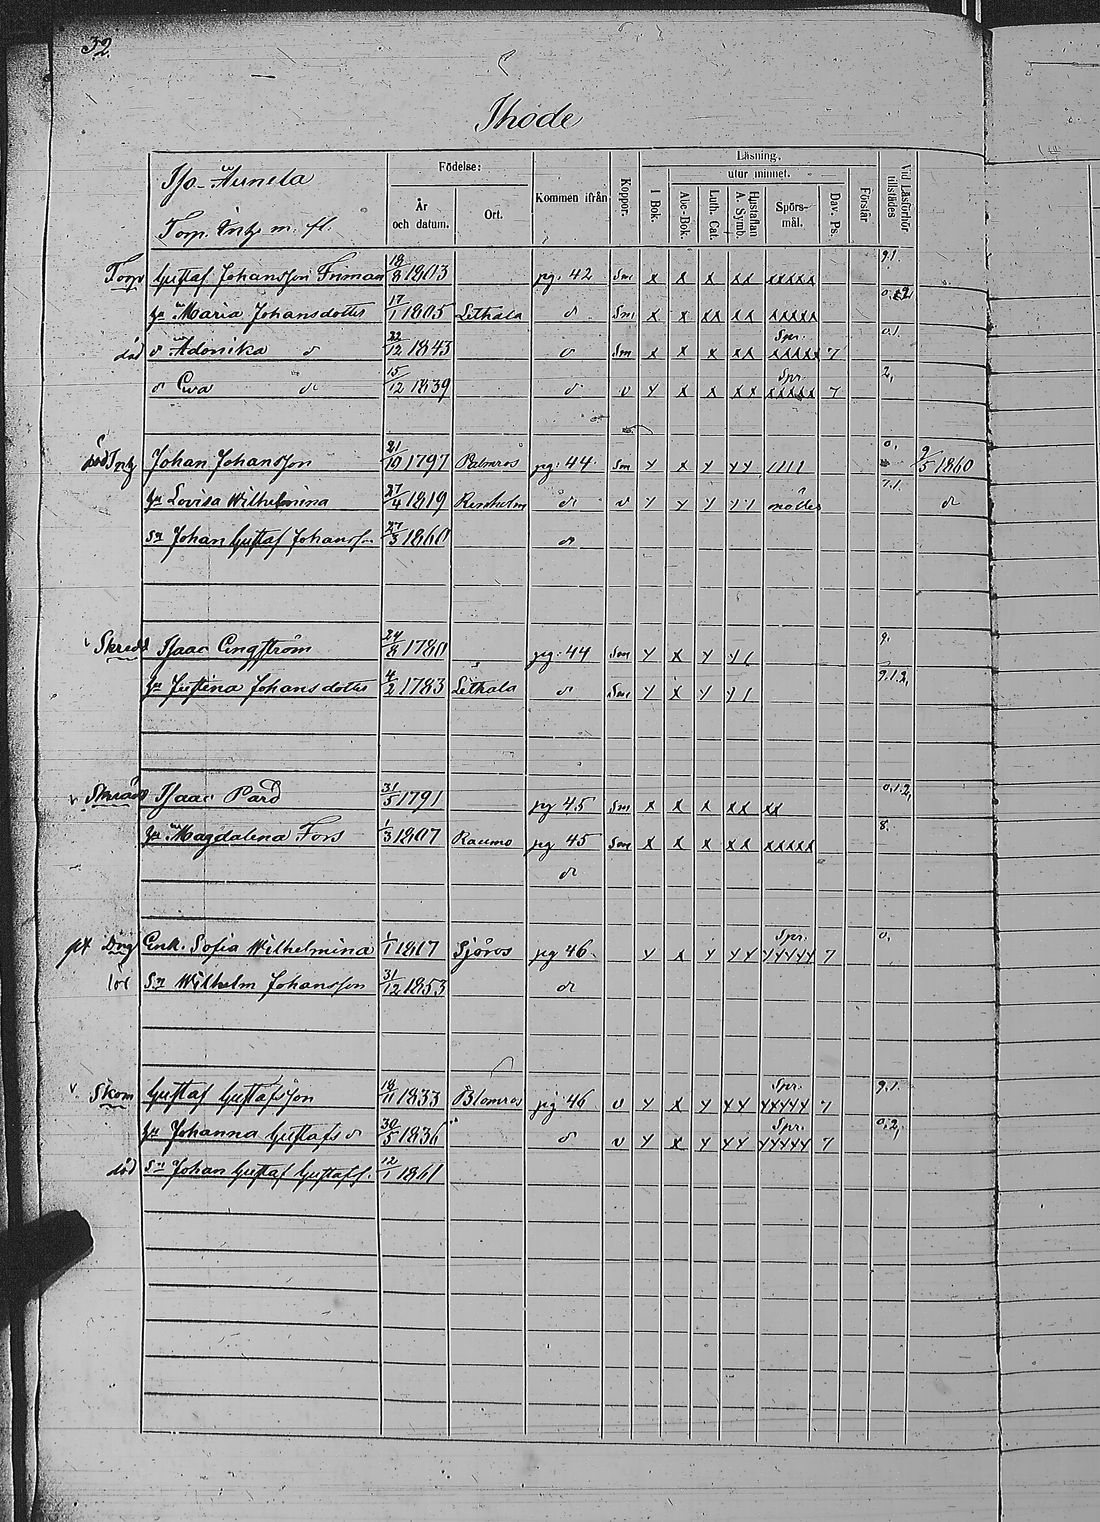 32.
Ihode
Iso-Aunela
Torp. Inhs m. fl.
Födelse:
År och datum.
Ort.
Kommen ifrån
Koppor.
Läsning,
utur minnet.
I Bok.
Abc-Bok.
Luth. Cat.
Hustaflan A. Symb.
Spörsmål.
Dav. Ps.
Förstår
Vid Läsförhör tillstädes
Torp Gustaf Johansson Friman 18/8 1803 pg. 42 Sm x x x xx xxxxx 9.1.
hu Maria Johansdotter 17/1 1805 Lethala d Sm x x xx xx xxxxx 0.
död d Adonika d 22/12 1843 d Sm x x x xx Spr. xxxxx 7 0.1.
d Eva d 15/12 1839 d v x x x xx Spr. xxxxx 7 2,
död Inhs Johan Johansson 21/10 1797 Palmros pg. 44 Sm x x x xx 0. 9/5 1860
hu Lovisa Wilhelmina 27/4 1819 Renholm d v nödes 7.1. d
sn Johan Gustaf Johanss. 27/3 1860 d
Skredd Isaac Engström 24/8 1780 pg. 44 Sm x x x 9.
hu Justina Johansdotter 4/2 1783 Lethala d Sm x x x 9.1.2,
Skrädd Isaac Pard 31/5 1791 pg 45 Sm x x x xx xx 0.1.2,
hu Magdalena Fors 1/3 1807 Raumo pg 45 Sm x x x xx xxxxx 8.
d
Enk. Sofia Wilhelmina 1/1 1817 Sjöros pg 46. x x x xx Spr. xxxxx 7 0,
sn Wilhelm Johansson 31/12 1853 d
v. Skom Gustaf Gustafsson 18/11 1833 Blomros pg 46 v x x x xx Spr. xxxxx 7 9.1.
hu Johanna Gustafs d 30/5 1836 d v x x x xx Spr. xxxxx 7 0.2,
död sn Johan Gustaf Gustafs. 12/1 1861